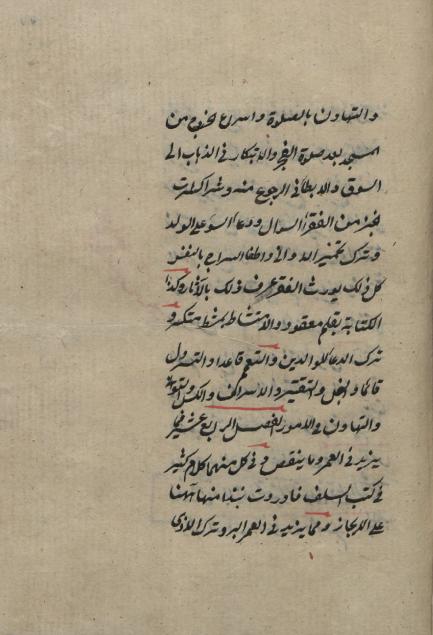 والتهاون بالصلوة واسراع الخروج من
المسجد بعد صلوة الفجر والابتكار في الذهاب الى
السوق والابطا في الرجوع منه وشرا كسرات
الخبز من الفقرا السوال ودعا السو على الولد
وترك تخمير الاوانى واطفا السراج بالنفس
كل ذلك يورث الفقر عرف ذلك بالآثار وكذا
الكتابة بقلم معقود والامتشاط بمشط منكسر و
ترك الدعا للوالدين والتعمم قاعدا والتسرول
قائما والبخل والتقتير والاسراف والكسل والتوانى
والتهاون فى الامور الفصل الرابع عشر فيما
يزيد فى العمر وما ينقص و فى كل منهما كلام كثير
فى كتب السلف فاوردت نبذا منها ههنا
على الايجاز ومما يزيد فى العمر البر وترك الاذى